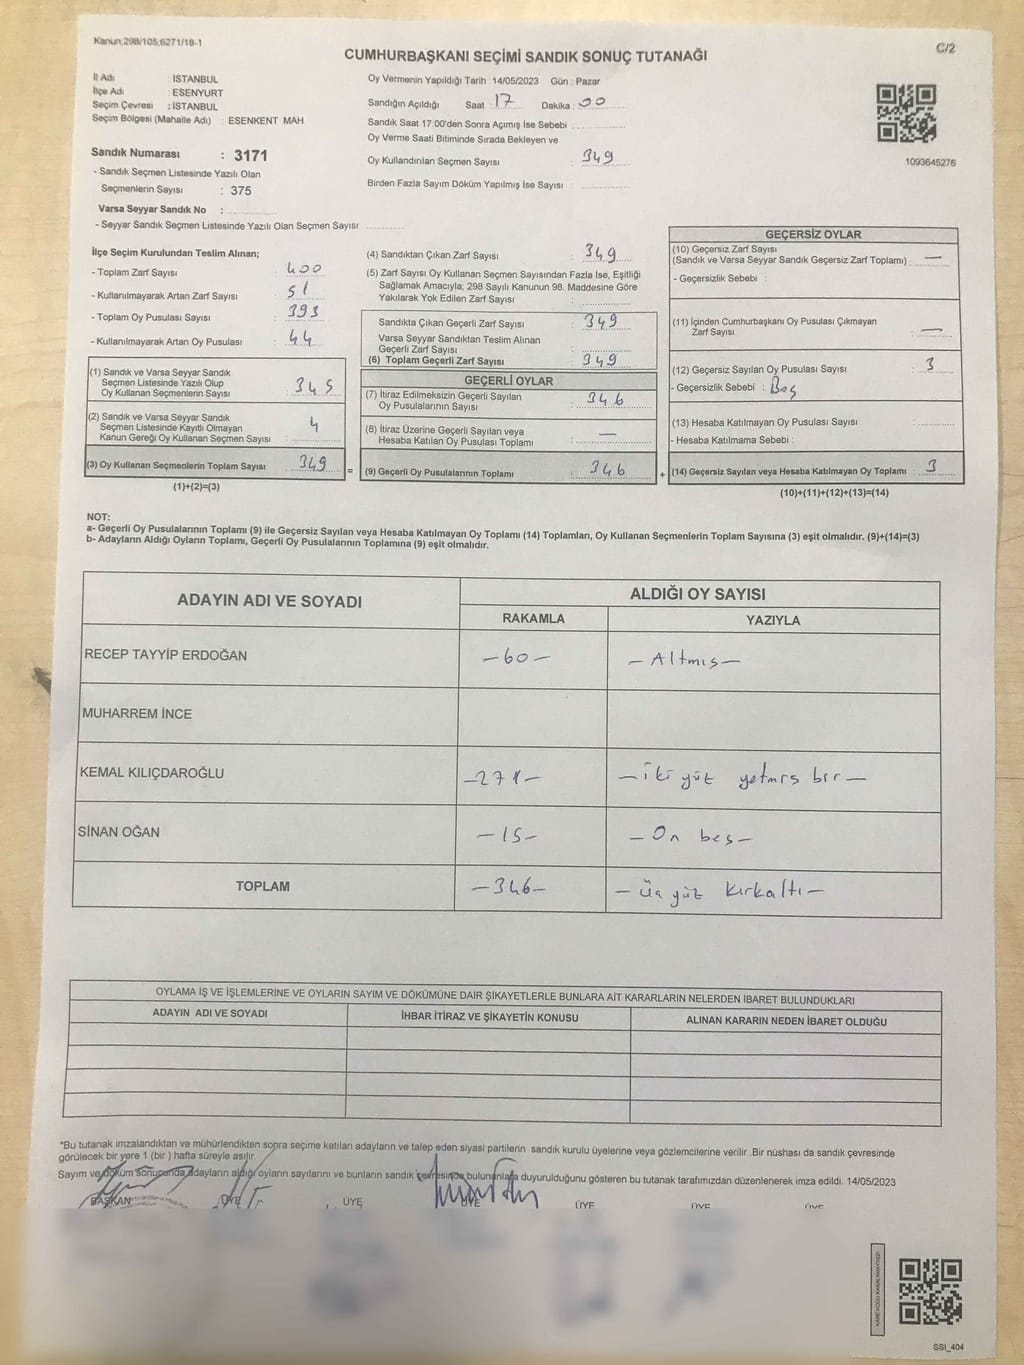 Kanun;298/105;6271/18-1
C/2
CUMHURBAŞKANI SEÇİMİ SANDIK SONUÇ TUTANAĞI
İl Adı : İSTANBUL
İlçe Adı : ESENYURT
Seçim Çevresi : İSTANBUL
Seçim Bölgesi (Mahalle Adı) : ESENKENT MAH
Sandık Numarası : 3171
- Sandık Seçmen Listesinde Yazılı Olan
Seçmenlerin Sayısı : 375
Varsa Seyyar Sandık No :
- Seyyar Sandık Seçmen Listesinde Yazılı Olan Seçmen Sayısı
Oy Vermenin Yapıldığı Tarih : 14/05/2023 Gün : Pazar
Sandığın Açıldığı Saat : 17 Dakika : 00
Sandık Saat 17:00'den Sonra Açımış İse Sebebi :
Oy Verme Saati Bitiminde Sırada Bekleyen ve
Oy Kullandırılan Seçmen Sayısı : 349
Birden Fazla Sayım Döküm Yapılmış İse Sayısı :
1093645276
İlçe Seçim Kurulundan Teslim Alınan;
- Toplam Zarf Sayısı : 400
- Kullanılmayarak Artan Zarf Sayısı : 51
- Toplam Oy Pusulası Sayısı : 393
- Kullanılmayarak Artan Oy Pusulası : 44
(1) Sandık ve Varsa Seyyar Sandık
Seçmen Listesinde Yazılı Olup
Oy Kullanan Seçmenlerin Sayısı : 345
(2) Sandık ve Varsa Seyyar Sandık
Seçmen Listesinde Kayıtlı Olmayan
Kanun Gereği Oy Kullanan Seçmen Sayısı : 4
(3) Oy Kullanan Seçmenlerin Toplam Sayısı : 349
(1)+(2)=(3)
=
(4) Sandıktan Çıkan Zarf Sayısı : 349
(5) Zarf Sayısı Oy Kullanan Seçmen Sayısından Fazla İse, Eşitliği
Sağlamak Amacıyla; 298 Sayılı Kanunun 98. Maddesine Göre
Yakılarak Yok Edilen Zarf Sayısı :
Sandıkta Çıkan Geçerli Zarf Sayısı : 349
Varsa Seyyar Sandıktan Teslim Alınan
Geçerli Zarf Sayısı :
(6) Toplam Geçerli Zarf Sayısı : 349
GEÇERLİ OYLAR
(7) İtiraz Edilmeksizin Geçerli Sayılan
Oy Pusulalarının Sayısı : 346
(8) İtiraz Üzerine Geçerli Sayılan veya
Hesaba Katılan Oy Pusulası Toplamı : —
(9) Geçerli Oy Pusulalarının Toplamı : 346
+
GEÇERSİZ OYLAR
(10) Geçersiz Zarf Sayısı
(Sandık ve Varsa Seyyar Sandık Geçersiz Zarf Toplamı) : —
- Geçersizlik Sebebi :
(11) İçinden Cumhurbaşkanı Oy Pusulası Çıkmayan
Zarf Sayısı : —
(12) Geçersiz Sayılan Oy Pusulası Sayısı : 3
- Geçersizlik Sebebi : Boş
(13) Hesaba Katılmayan Oy Pusulası Sayısı :
- Hesaba Katılmama Sebebi :
(14) Geçersiz Sayılan veya Hesaba Katılmayan Oy Toplamı : 3
(10)+(11)+(12)+(13)=(14)
NOT:
a- Geçerli Oy Pusulalarının Toplamı (9) ile Geçersiz Sayılan veya Hesaba Katılmayan Oy Toplamı (14) Toplamları, Oy Kullanan Seçmenlerin Toplam Sayısına (3) eşit olmalıdır. (9)+(14)=(3)
b- Adayların Aldığı Oyların Toplamı, Geçerli Oy Pusulalarının Toplamına (9) eşit olmalıdır.
ADAYIN ADI VE SOYADI
ALDIĞI OY SAYISI
RAKAMLA
YAZIYLA
RECEP TAYYİP ERDOĞAN —60— —Altmış—
MUHARREM İNCE
KEMAL KILIÇDAROĞLU —271— —iki yüz yetmiş bir—
SİNAN OĞAN —15— —On beş—
TOPLAM —346— —üç yüz kırkaltı—
OYLAMA İŞ VE İŞLEMLERİNE VE OYLARIN SAYIM VE DÖKÜMÜNE DAİR ŞİKAYETLERLE BUNLARA AİT KARARLARIN NELERDEN İBARET BULUNDUKLARI
ADAYIN ADI VE SOYADI
İHBAR İTİRAZ VE ŞİKAYETİN KONUSU
ALINAN KARARIN NEDEN İBARET OLDUĞU
*Bu tutanak imzalandıktan ve mühürlendikten sopra seçime katılan adayların ve talep eden siyasi partilerin sandık kurulu üyelerine veya gözlemcilerine verilir .Bir nüshası da sandık çevresinde
görülecek bir yere 1 (bir ) hafta süreyle asılır.
Sayım ve döküm sonucunda adayların aldığı oyların sayılarını ve bunların sandık çevresinde bulunanlara duyurulduğunu gösteren bu tutanak tarafımızdan düzenlenerek imza edildi. 14/05/2023
BAŞKAN ÜYE ÜYE ÜYE ÜYE ÜYE ÜYE
KAREKODU KARALAMAYINIZ!
SSI_404